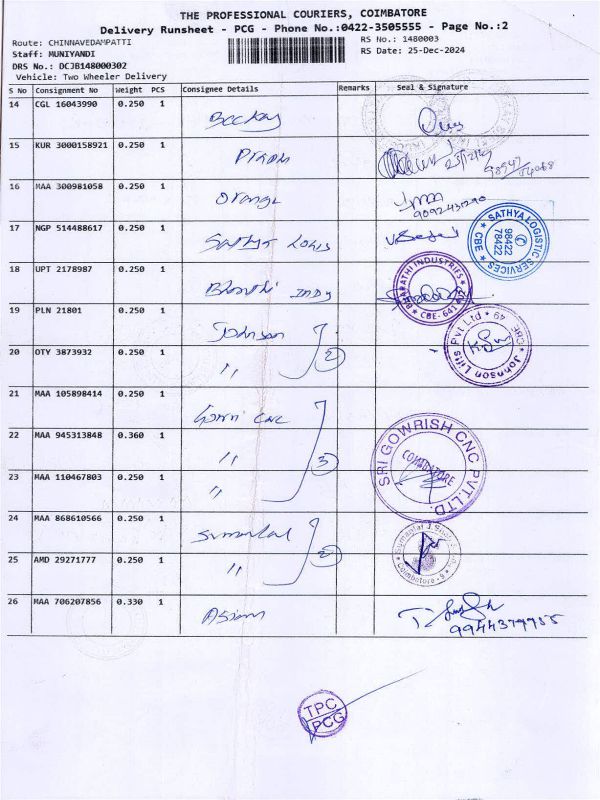 THE PROFESSIONAL COURIERS, COIMBATORE
Delivery Runsheet - PCG - Phone No.:0422-3505555 - Page No.:2
Route: CHINNAVEDAMPATTI RS No.: 1480003
Staff: MUNIYANDI RS Date: 25-Dec-2024
DRS No.: DCJB148000302
Vehicle: Two Wheeler Delivery
S No Consignment No Weight PCS Consignee Details Remarks Seal & Signature
14 CGL 16043990 0.250 1
15 KUR 3000158921 0.250 1
16 MAA 300981058 0.250 1 Orange
17 NGP 514488617 0.250 1 SATHYA LOGISTIC SERVICES CBE 98422 78422
18 UPT 2178987 0.250 1 Bharathi Indu BHARATHI INDUSTRIES CBE-641
19 PLN 21801 0.250 1 Johnson
20 OTY 3873932 0.250 1 " 2 Johnson Lifts Pvt Ltd CBE 49
21 MAA 105898414 0.250 1 Gowri CNC
22 MAA 945313848 0.360 1 " 3 SRI GOWRISH CNC PVT.LTD. COIMBATORE
23 MAA 110467803 0.250 1 "
24 MAA 868610566 0.250 1 Sumanlal
25 AMD 29271777 0.250 1 " 2 Sumanlal J. Coimbatore - 9
26 MAA 706207856 0.330 1 Asian
9944379955
TPC
PCG